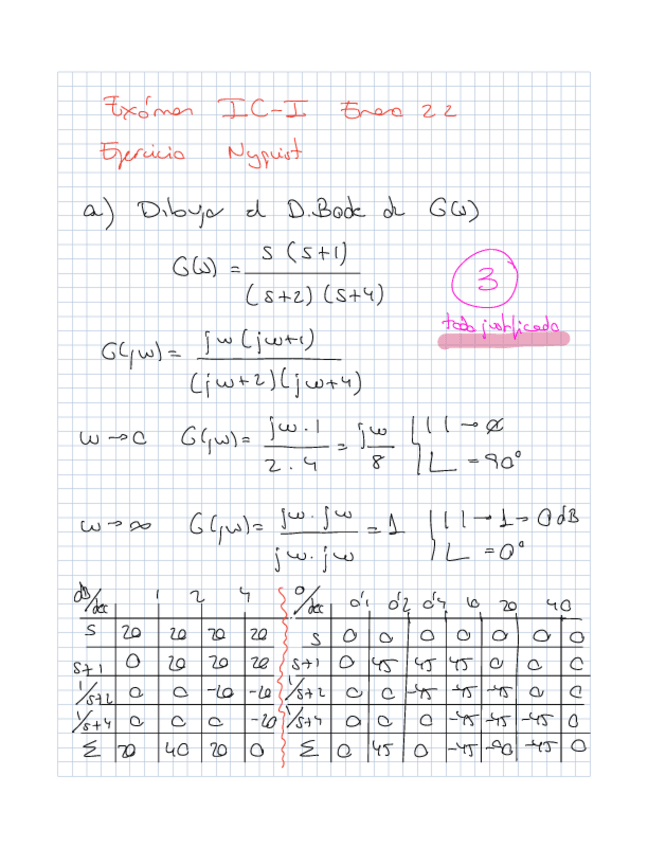 Exámen IC-I Enero 22
Ejercicio Nyquist
a) Dibujar el D.Bode de G(s)
G(s) = s (s+1) / (s+2) (s+4)
3
todo justificado
G(jw) = jw (jw+1) / (jw+2)(jw+4)
w→0 G(jw) = jw . 1 / 2 . 4 = jw / 8 | | → 0
∟ = 90°
w→∞ G(jw) = jw . jw / jw . jw = 1 | | → 1 → 0 dB
∟ = 0°
dB/dec 1 2 4 º/dec 0'1 0'2 0'4 10 20 40
s 20 20 20 20 s 0 0 0 0 0 0 0
s+1 0 20 20 20 s+1 0 45 45 45 0 0 0
1/s+2 0 0 -20 -20 1/s+2 0 0 -45 -45 -45 0 0
1/s+4 0 0 0 -20 1/s+4 0 0 0 -45 -45 -45 0
Σ 20 40 20 0 Σ 0 45 0 -45 -90 -45 0